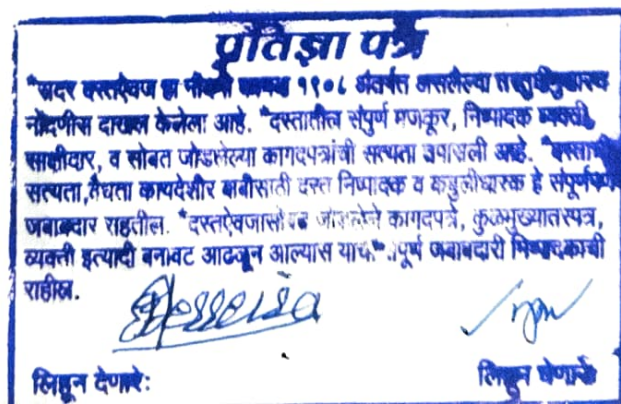 प्रतिज्ञा पत्र
"सदर दस्तऐवज हा नोंदणी कायदा १९०८ अंतर्गत असलेल्या तरतुदीनुसारच
नोंदणीस दाखल केलेला आहे. "दस्तातील संपुर्ण मजकूर, निष्पादक व्यक्ती,
साक्षीदार, व सोबत जोडलेल्या कागदपत्रांची सत्यता तपासली आहे. "दस्ताची
सत्यता, वैधता कायदेशीर बाबीसाठी दस्त निष्पादक व कबुलीधारक हे संपूर्णपणे
जबाबदार राहतील. "दस्तऐवजासोबत जोडलेले कागदपत्रे, कुळमुख्यातरपत्र,
व्यक्ती इत्यादी बनावट आढळून आल्यास याची संपूर्ण जबाबदारी निष्पादकाची
राहील.
लिहून देणारे: लिहून घेणारे